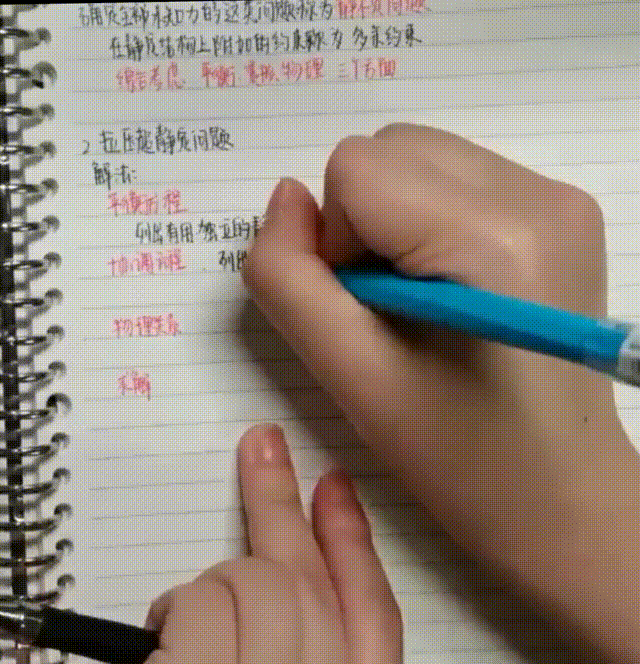 力的这类问题称为静不定问题
在静定结构上附加的约束称为 多余约束
综合考虑 平衡、变形、物理 三个方面
2 拉压超静定问题
解法:
平衡方程
列出有用独立的
协调方程 . 列出
物理关系
求解